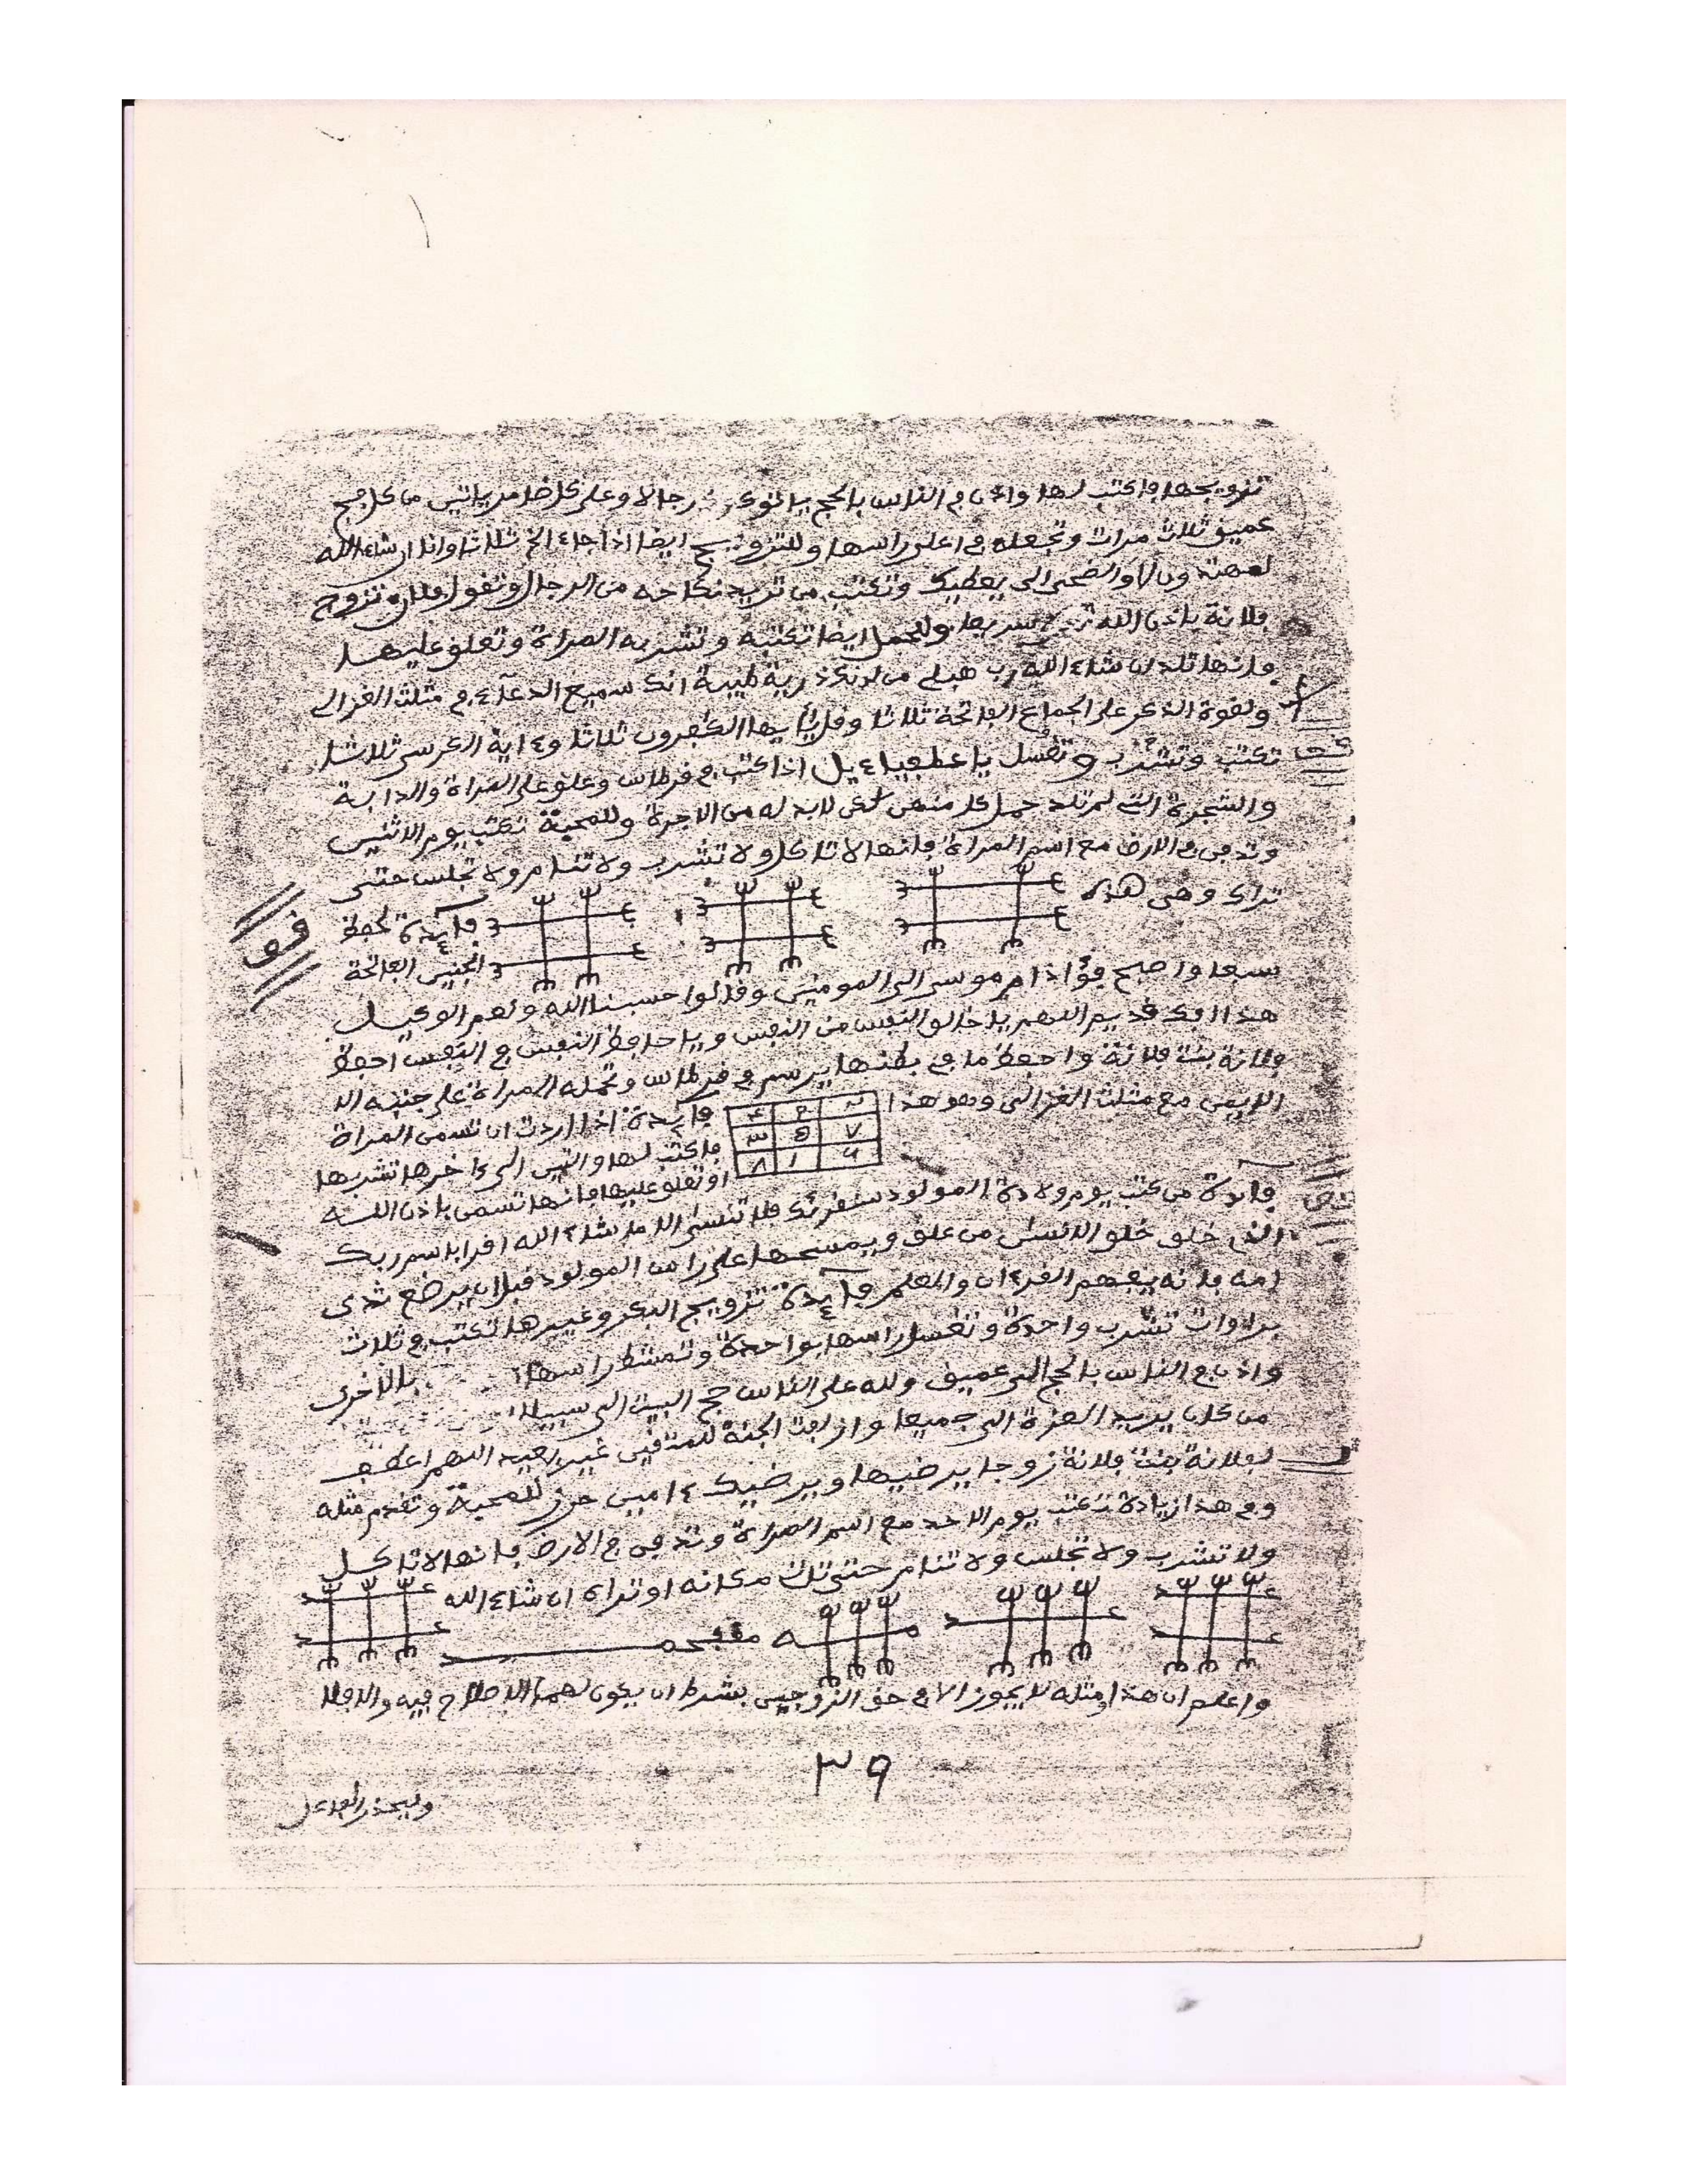 تزويجها فاكتب لها واذن في الناس بالحج ياتوك رجالا وعلى كل ضامر ياتين من كل فج
عميق ثلاث مرات وتجعله في اعلى راسها وللتزويج ايضا اذا جاء الخ ثلاثا وانا ان شاء الله
لمهتدون والضحى الى يعطيك وتكتب من تريد نكاحه من الرجال وتقول فلان تزوج
فلانة باذن الله سريعا وللحمل ايضا تكتبه وتشربه المراة وتعلق عليها
فانها تلد ان شاء الله رب هب لي من لدنك ذرية طيبة انك سميع الدعاء في مثلث الغزالي
ولقوة الذكر على الجماع الفاتحة ثلاثا وقل يايها الكفرون ثلاثا وءاية الكرسي ثلاثا
تكتب وتشرب وتغسل يا اذا كتب في قرطاس وعلق على المراة والدابة
والشجرة التي لم تلد حمل كل منهن لكن لابد له من الاجرة وللمحبة تكتب يوم الاثنين
وتدفن في الارض مع اسم المراة فانها لا تاكل ولا تشرب ولا تنام ولا تجلس حتى
تراك وهي هذه
فايدة لحفظ
الجنين الفاتحة
سبعا واصبح فؤاد ام موسى الى المومنين وقالوا حسبنا الله ونعم الوكيل
هذا افك قديم اللهم يا خالق النفس من النفس ويا حافظ النفس في النفس احفظ
فلانة بنت فلانة واحفظ ما في بطنها يرسم في قرطاس وتحمله المراة على جنبه الا
الايمن مع مثلث الغزالي وهو هذا
٤ ٩ ٢
٣ ٥ ٧
٨ ١ ٦
فايدة اذا اردت ان تسمن المراة
فاكتب لها والتين الى ءاخرها تشربها
او تعلق عليها فانها تسمن باذن الله
فايدة من كتب يوم ولادة المولود سنقرئك فلا تنسى الا ما شاء الله اقرا باسم ربك
الذي خلق خلق الانسن من علق ويمسحها على راس المولود قبل ان يرضع ثدي
امه فانه يفهم القرءان والعلم فايدة تزويج البكر وغيرها تكتب في ثلاث
براوات تشرب واحدة وتغسل راسها بواحدة وتمشط راسها بالاخرى
واذن في الناس بالحج الى عميق ولله على الناس حج البيت الى سبيلا
من كان يريد العزة الى جميعا وازلفت الجنة للمتقين غير بعيد اللهم اعطف
لفلانة بنت فلانة زوجا يرضيها ويرضيك ءامين حرز للمحبة وتقدم مثله
وفي هذا زيادة تكتب يوم الاحد مع اسم المراة وتدفن في الارض فانها لا تاكل
ولا تشرب ولا تجلس ولا تنام حتى تات مكانه او تراه ان شاء الله
واعلم ان هذا ومثله لا يجوز الا في حق الزوجين بشرط ان يكون لهما الاصلاح فيه والا فلا
٣٩
وليحذر الفاعل